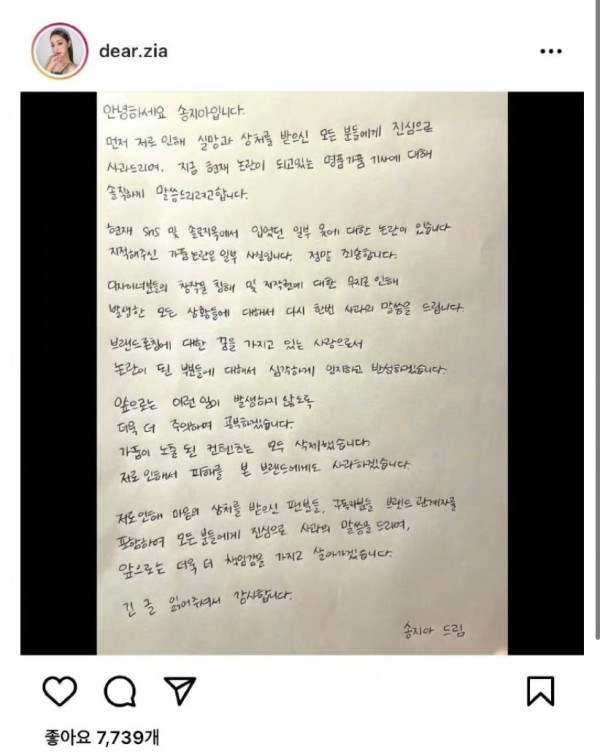 dear.zia
안녕하세요 송지아입니다.
먼저 저로 인해 실망과 상처를 받으신 모든 분들에게 진심으로
사과드리며, 지금 현재 논란이 되고있는 명품가품 기사에 대해
솔직하게 말씀드리려고합니다.
현재 SNS 및 솔로지옥에서 입었던 일부 옷에 대한 논란이 있습니다
지적해주신 가품논란은 일부 사실입니다. 정말 죄송합니다.
디자이너분들의 창작물 침해 및 저작권에 대한 무지로 인해
발생한 모든 상황들에 대해서 다시 한번 사과의 말씀을 드립니다.
브랜드론칭에 대한 꿈을 가지고 있는 사람으로서
논란이 된 부분들에 대해서 심각하게 인지하고 반성하겠습니다.
앞으로는 이런 일이 발생하지 않도록
더욱 더 주의하며 공부하겠습니다.
가품이 노출 된 컨텐츠는 모두 삭제했습니다.
저로인해서 피해를 본 브랜드에게도 사과하겠습니다.
저로인해 마음의 상처를 받으신 팬분들, 구독자분들 브랜드 관계자를
포함하여 모든분들에게 진심으로 사과의 말씀을 드리며,
앞으로는 더욱 더 책임감을 가지고 살아가겠습니다.
긴 글 읽어주셔서 감사합니다.
송지아 드림
좋아요 7,739개